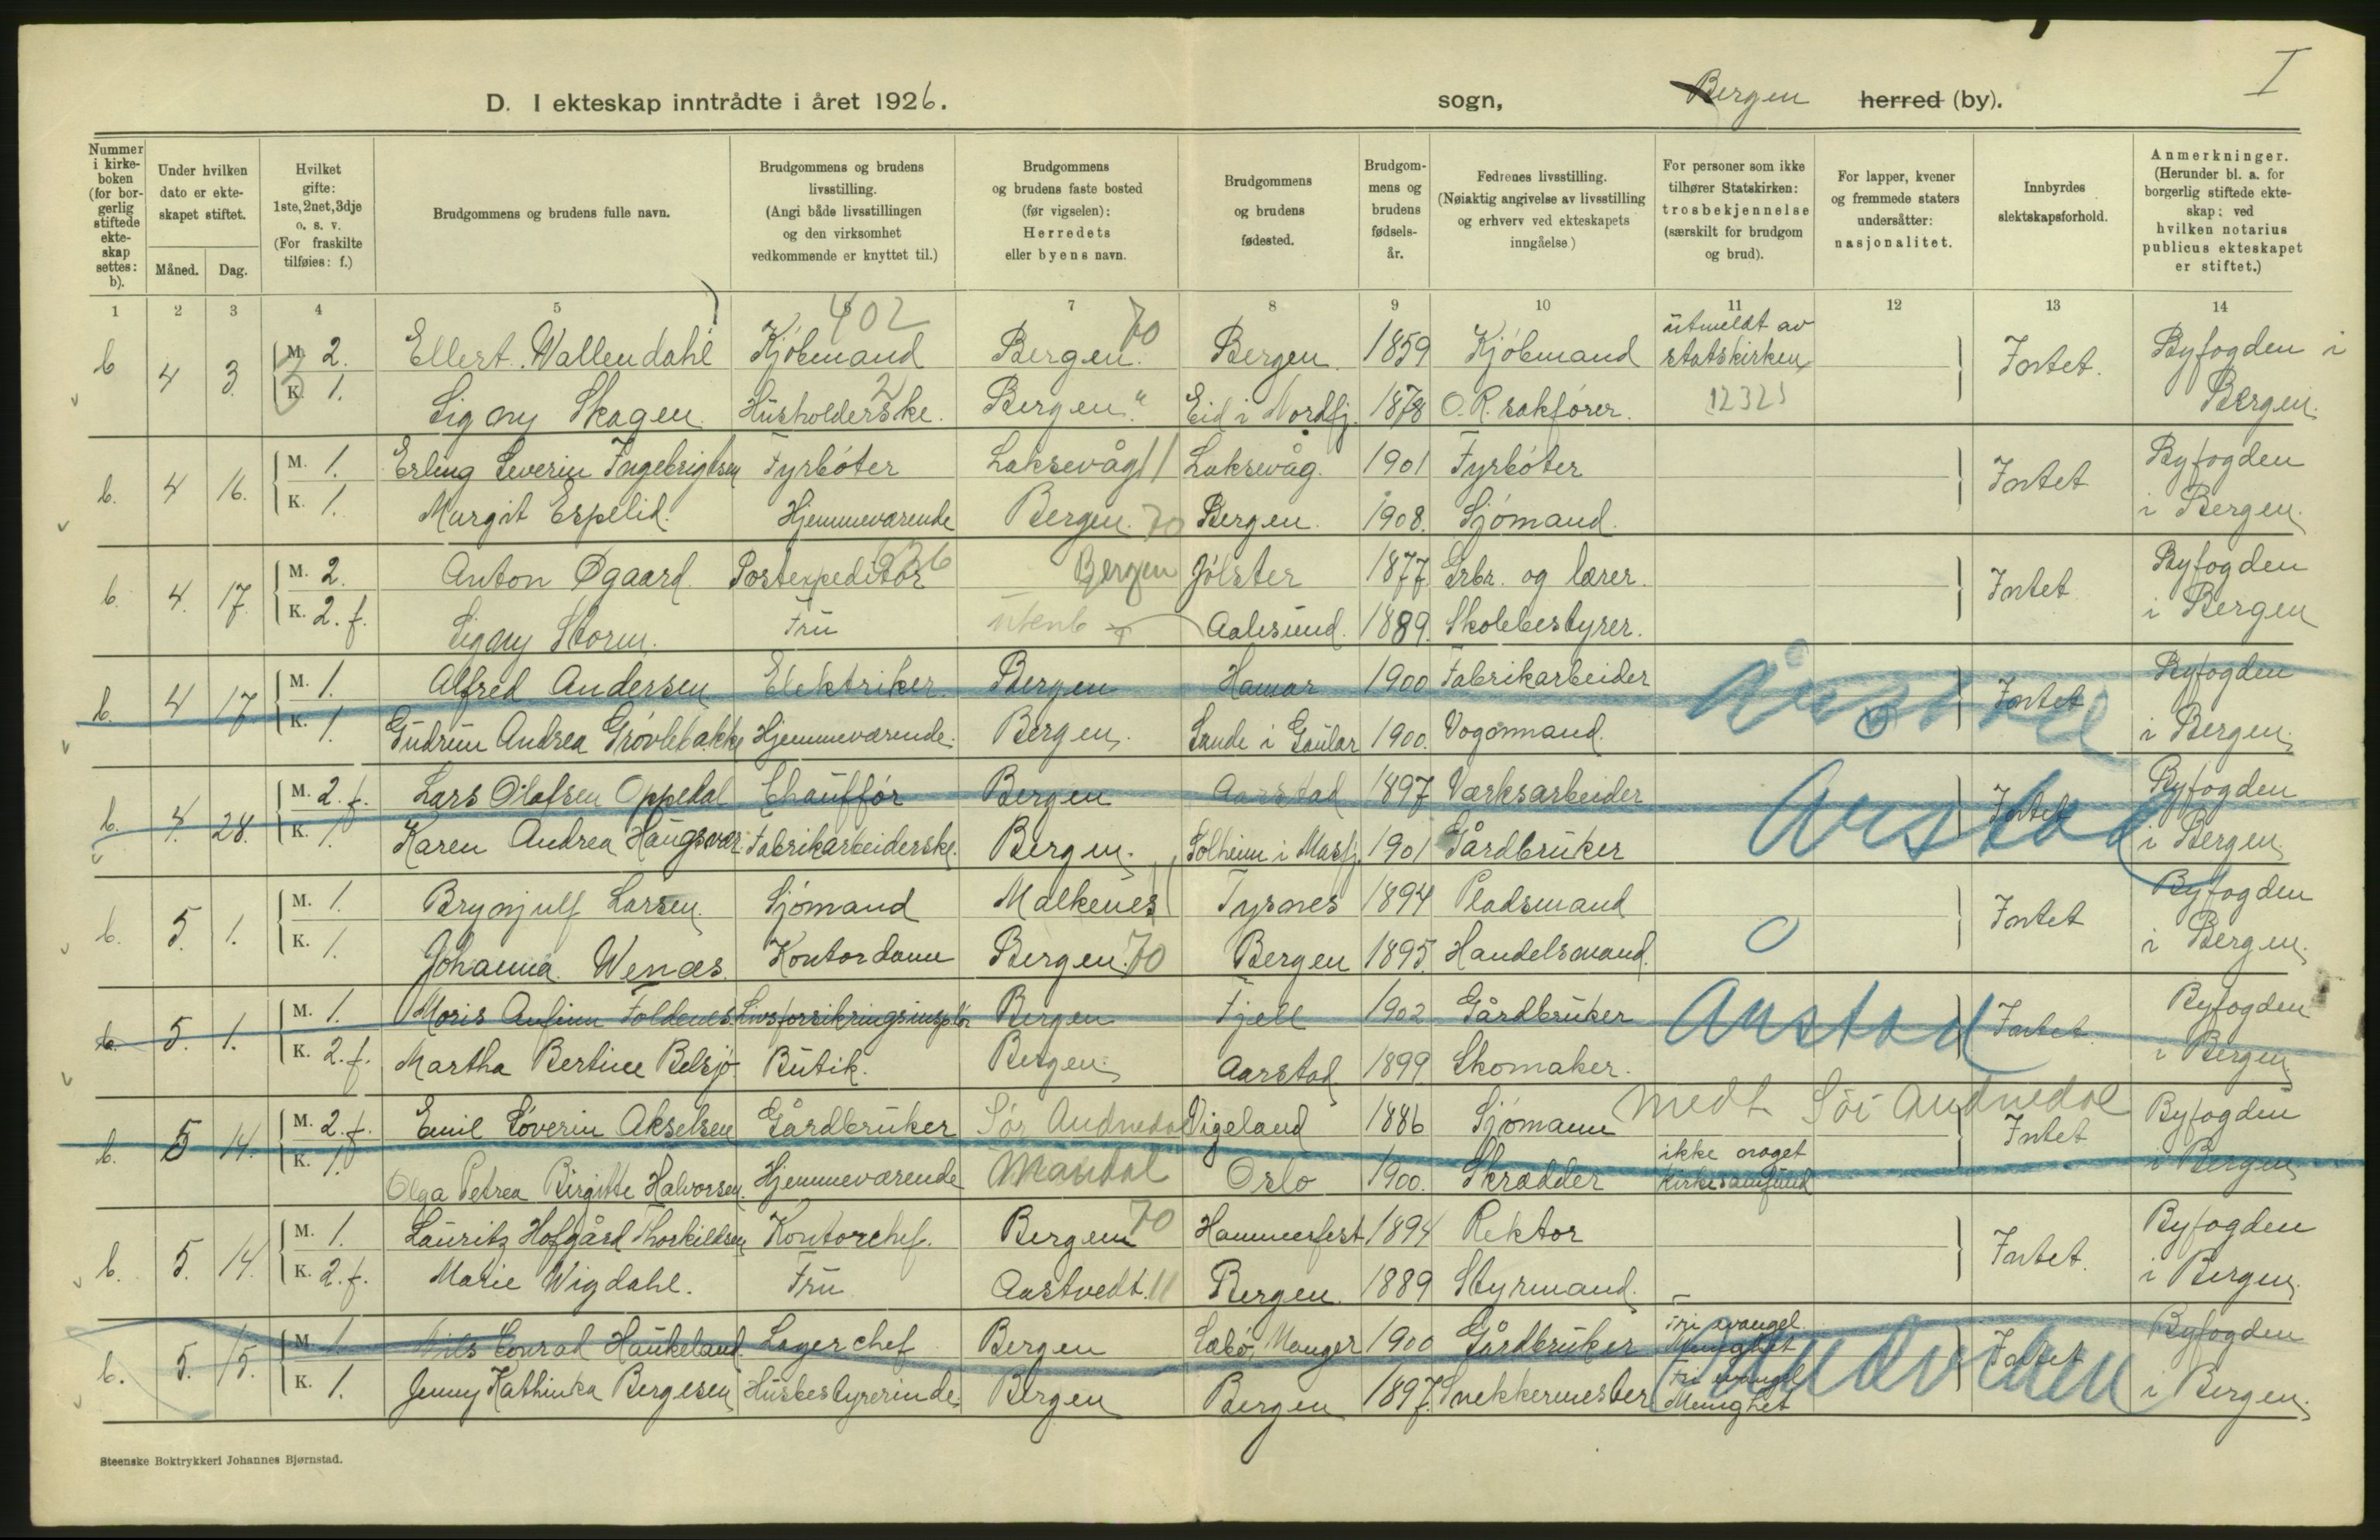 I
D. I ekteskap inntrådte i året 1926. sogn, Bergen herred (by).
Nummer i kirkeboken (for borgerlig stiftede ekteskap settes: b).
Under hvilken dato er ekteskapet stiftet.
Måned. Dag.
Hvilket gifte: 1ste, 2net, 3dje o. s. v. (For fraskilte tilføies: f.)
Brudgommens og brudens fulle navn.
Brudgommens og brudens livsstilling. (Angi både livsstillingen og den virksomhet vedkommende er knyttet til.)
Brudgommens og brudens faste bosted (før vigselen): Herredets eller byens navn.
Brudgommens og brudens fødested.
Brudgommens og brudens fødselsår.
Fedrenes livsstilling. (Nøiaktig angivelse av livsstilling og erhverv ved ekteskapets inngåelse)
For personer som ikke tilhører Statskirken: trosbekjennelse (særskilt for brudgom og brud).
For lapper, kvener og fremmede staters undersåtter: nasjonalitet.
Innbyrdes slektskapsforhold.
Anmerkninger. (Herunder bl. a. for borgerlig stiftede ekteskap: ved hvilken notarius publicus ekteskapet er stiftet.)
1 2 3 4 5 6 7 8 9 10 11 12 13 14
402 70
b 4 3. M. 2. Ellert Wallendahl Kjøbmand Bergen. Bergen. 1859 Kjøbmand utmeldt av statskirken Intet. Byfogden i
K. 1. Signy Skagen. Husholderske. Bergen. " Eid i Nordfj. 1878 O.R. sakfører. 12325 Bergen.
b. 4 16. M. 1. Erling Severin Ingebrigtsen Fyrbøter Laksevåg 11 Laksevåg. 1901 Fyrbøter Intet Byfogden
K. 1. Margit Espelid. Hjemmeværende Bergen. 70 Bergen. 1908. Sjømand. i Bergen.
b. 4. 17. M. 2. Anton Øgaard. Postexpeditør 636 Bergen Jølster 1877 Grbr. og lærer. Intet Byfogden
K. 2. f. Signy Storm. Fru utenb Aalesund. 1889. Skolebestyrer. i Bergen
b. 4 17 M. 1. Alfred Andersen Elektriker. Bergen Hamar 1900 Fabrikarbeider Intet Byfogden
K. 1. Gudrun Andrea Grøvlebakke Hjemmeværende. Bergen. Sande i Gaular 1900. Vognmand. i Bergen.
b. 4. 28. M. 2. f. Lars Olafsen Oppedal Chauffør Bergen Aarstad 1897 Værksarbeider Arstad Intet Byfogden
K. 1. Karen Andrea Haugsvær Fabrikarbeiderske. Bergen. Solheim i Masfj. 1901 Gårdbruker i Bergen.
b. 5. 1. M. 1. Brynjulf Larsen. Sjømand Malkenes Tysnes 1894 Pladsmand Intet Byfogden
K. 1. Johanna Wenæs. Kontordame Bergen. 70 Bergen 1895. Handelsmand. O i Bergen.
b. 5. 1. M. 1. Moris Anfinn Foldenes. Livsforsikringsinsptør Bergen Fjell 1902 Gårdbruker Arstad Intet. Byfogden
K. 2. f. Martha Bertine Belsjø Butik. Bergen. Aarstad 1899 Skomaker. i Bergen
medt Sør Audnedal
b. 5 14. M. 2. f. Emil Søverin Akselsen Gårdbruker Sør Audnedal Vigeland 1886 Sjømann Intet Byfogden
K. 1. Olga Petrea Birgitte Halvorsen. Hjemmeværende Mandal Oslo 1900. Skrædder ikke noget kirkesamfund i Bergen
b. 5. 14. M. 1. Lauritz Hofgård Thorkildsen Kontorchef. Bergen 70 Hammerfest 1894 Rektor Intet. Byfogden
K. 2. f. Marie Wigdahl. Fru Aastvedt. 11 Bergen. 1889 Styrmand. i Bergen.
b. 5. 15. M. 1. Nils Conrad Haukeland. Lagerchef Bergen Sæbø, Manger 1900 Gårdbruker Fri evangel. Menighet Intet Byfogden
K. 1. Jenny Kathinka Bergesen Husbestyrerinde. Bergen Bergen 1897. Snekkermester Fri evangel Menighet i Bergen.
Steenske Boktrykkeri Johannes Bjørnstad.